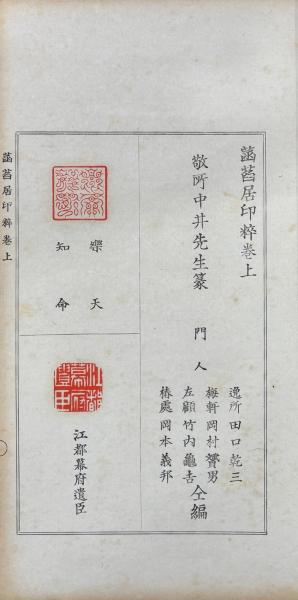 菡萏居印粹卷上
敬所中井先生篆
門人
逸所田口乾三
梅軒岡村贇男
左顧竹內龜吉
椿處岡本義邦
仝編
樂天
知命
江都幕府遺臣
菡萏居印粹卷上